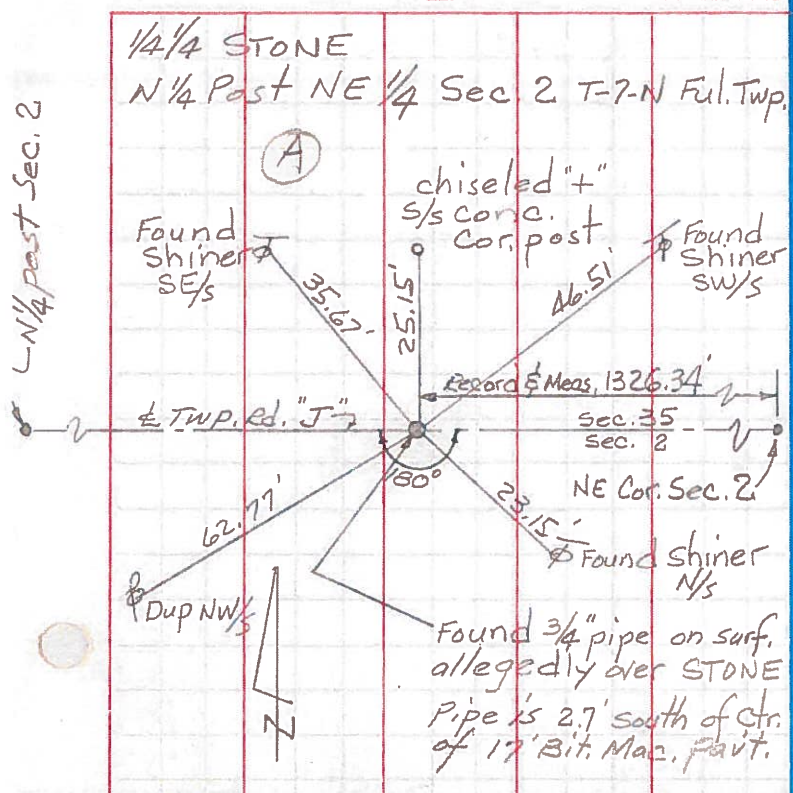 1/4 1/4 STONE
N 1/4 Post NE 1/4 Sec. 2 T-7-N Ful. Twp.
N 1/4 post Sec. 2
A
chiseled "+"
S/s conc.
Cor. post
Found
Shiner
SE/s
Found
Shiner
SW/s
35.67'
25.15'
46.51'
Record & Meas. 1326.34'
℄ TWP. Rd. "J"
Sec. 35
Sec. 2
180°
NE Cor. Sec. 2
62.77'
23.15'
Found Shiner
N/s
Dup NW/s
Found 3/4" pipe on surf.
allegedly over STONE
Pipe is 2.7' south of Ctr.
of 17' Bit. Mac. Pav't.
N